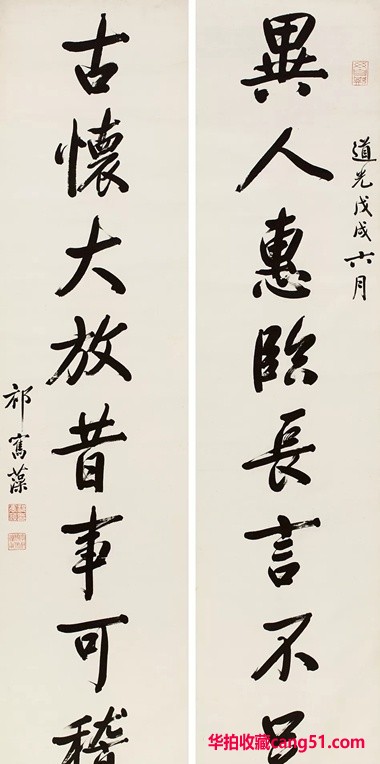 道光戊戌六月
異人惠臨長言不足
古懷大放昔事可稽
祁寯藻
华拍收藏cang51.com